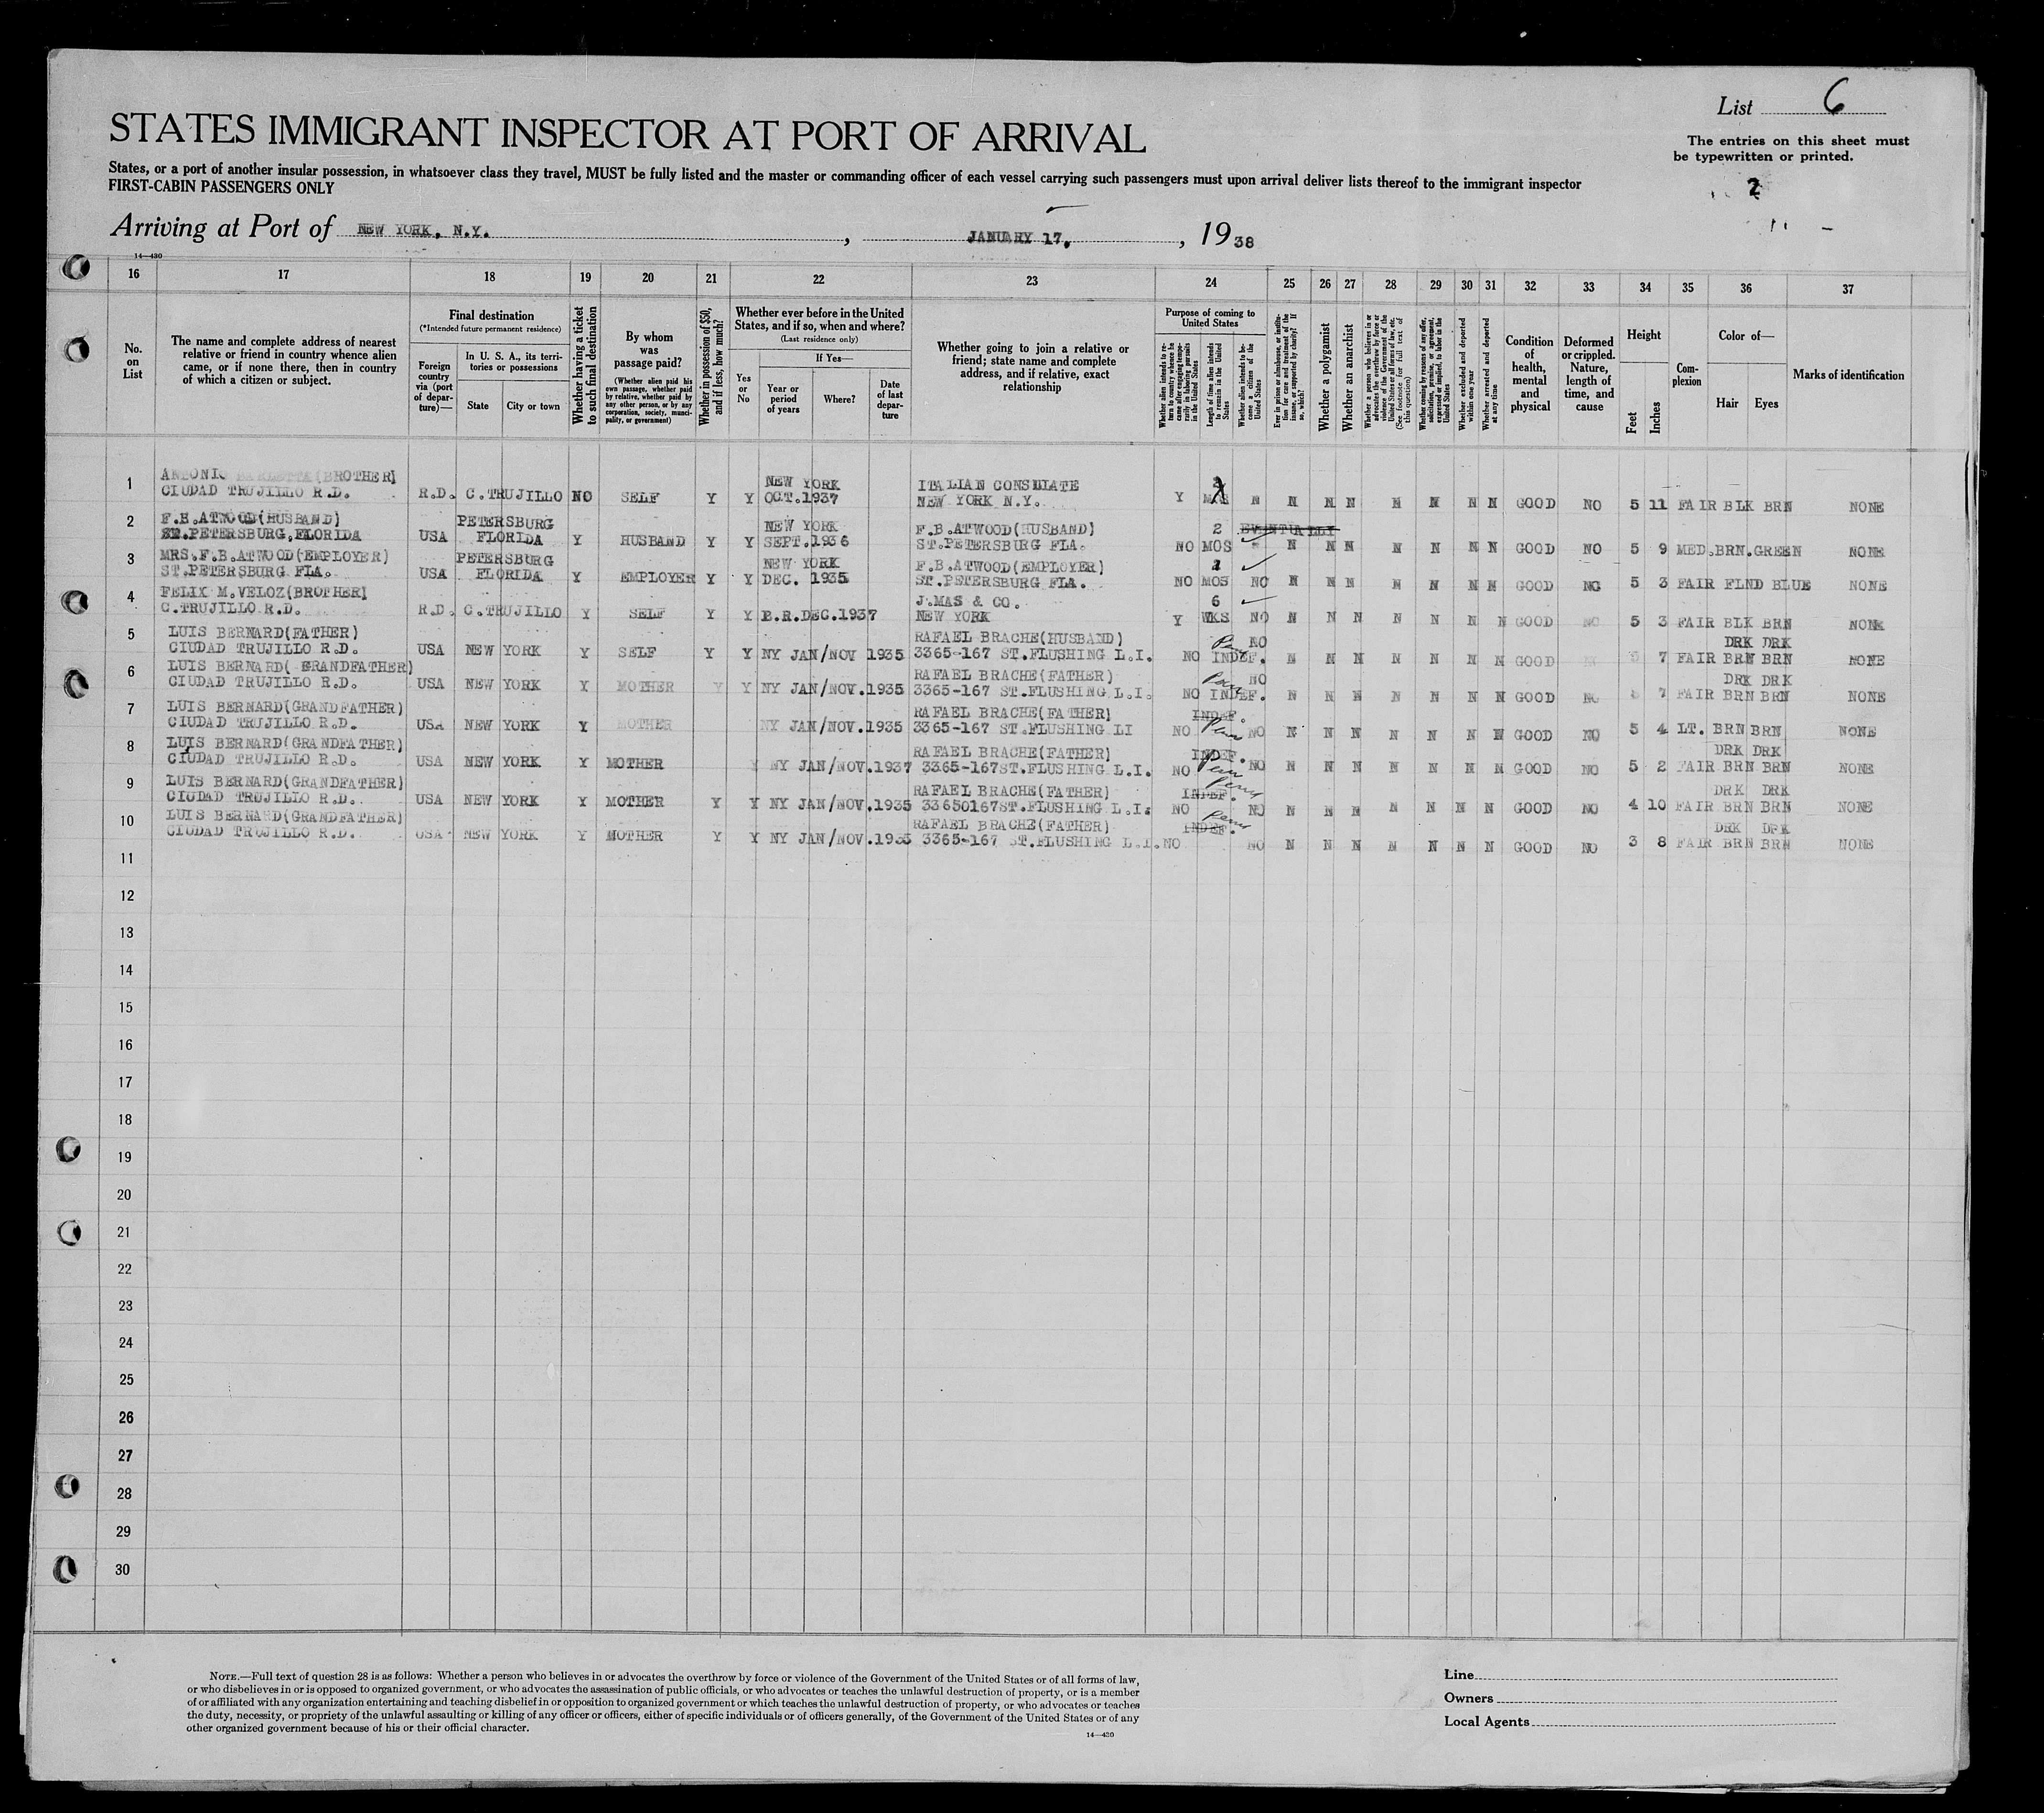 List 6
STATES IMMIGRANT INSPECTOR AT PORT OF ARRIVAL
The entries on this sheet must
be typewritten or printed.
States, or a port of another insular possession, in whatsoever class they travel, MUST be fully listed and the master or commanding officer of each vessel carrying such passengers must upon arrival deliver lists thereof to the immigrant inspector
FIRST-CABIN PASSENGERS ONLY
2
Arriving at Port of NEW YORK, N.Y. , JANUARY 17, , 1938
14—430
16 17 18 19 20 21 22 23 24 25 26 27 28 29 30 31 32 33 34 35 36 37
No. on List
The name and complete address of nearest relative or friend in country whence alien came, or if none there, then in country of which a citizen or subject.
Final destination
(*Intended future permanent residence)
Foreign country via (port of departure)—
In U. S. A., its territories or possessions
State
City or town
Whether having a ticket to such final destination
By whom was passage paid?
(Whether alien paid his own passage, whether paid by relative, whether paid by any other person, or by any corporation, society, municipality, or government)
Whether in possession of $50, and if less, how much?
Whether ever before in the United States, and if so, when and where?
(Last residence only)
Yes or No
If Yes—
Year or period of years
Where?
Date of last departure
Whether going to join a relative or friend; state name and complete address, and if relative, exact relationship
Purpose of coming to United States
Whether alien intends to return to country whence he came after engaging temporarily in laboring pursuits in the United States
Length of time alien intends to remain in the United States
Whether alien intends to become a citizen of the United States
Ever in prison or almshouse, or institution for care and treatment of the insane, or supported by charity? If so, which?
Whether a polygamist
Whether an anarchist
Whether a person who believes in or advocates the overthrow by force or violence of the Government of the United States or all forms of law, etc. (See footnote for full text of this question)
Whether coming by reasons of any offer, solicitation, promise, or agreement, expressed or implied, to labor in the United States
Whether excluded and deported within one year
Whether arrested and deported at any time
Condition of health, mental and physical
Deformed or crippled. Nature, length of time, and cause
Height
Feet
Inches
Complexion
Color of—
Hair
Eyes
Marks of identification
ANTONIO BARLETTA(BROTHER) NEW YORK ITALIAN CONSULATE
1 CIUDAD TRUJILLO R.D. R.D. C.TRUJILLO NO SELF Y Y OCT.1937 NEW YORK N.Y. Y MOS N N N N N N N N GOOD NO 5 11 FAIR BLK BRN NONE
F.B.ATWOOD(HUSBAND) PETERSBURG NEW YORK F.B.ATWOOD(HUSBAND) 2 EVENTUALLY
2 ST.PETERSBURG,FLORIDA USA FLORIDA Y HUSBAND Y Y SEPT.1936 ST.PETERSBURG FLA. NO MOS N N N N N N N GOOD NO 5 9 MED.BRN.GREEN NONE
MRS.F.B.ATWOOD(EMPLOYER) PETERSBURG NEW YORK F.B.ATWOOD(EMPLOYER)
3 ST.PETERSBURG FLA. USA FLORIDA Y EMPLOYER Y Y DEC. 1935 ST.PETERSBURG FLA. NO MOS NO N N N N N N N GOOD NO 5 3 FAIR FLND BLUE NONE
FELIX M.VELOZ(BROTHER) J.MAS & CO. 6
4 C.TRUJILLO R.D. R.D. C.TRUJILLO Y SELF Y Y B.R.DEC.1937 NEW YORK Y WKS NO N N N N N N N GOOD NO 5 3 FAIR BLK BRN NONE
LUIS BERNARD(FATHER) RAFAEL BRACHE(HUSBAND) NO DRK DRK
5 CIUDAD TRUJILLO R.D. USA NEW YORK Y SELF Y Y NY JAN/NOV 1935 3365-167 ST.FLUSHING L.I. NO INDEF. N N N N N N N GOOD 5 7 FAIR BRN BRN NONE
LUIS BERNARD( GRANDFATHER) RAFAEL BRACHE(FATHER) NO DRK DRK
6 CIUDAD TRUJILLO R.D. USA NEW YORK Y MOTHER Y Y NY JAN/NOV.1935 3365-167 ST.FLUSHING L.I. NO INDEF. N N N N N N N GOOD NO 7 FAIR BRN BRN NONE
LUIS BERNARD(GRANDFATHER) RAFAEL BRACHE(FATHER) INDEF.
7 CIUDAD TRUJILLO R.D. USA NEW YORK Y MOTHER NY JAN/NOV.1935 3365-167 ST.FLUSHING LI NO Perm NO N N N N N N N GOOD NO 5 4 LT. BRN BRN NONE
LUIS BERNARD(GRANDFATHER) RAFAEL BRACHE(FATHER) INDEF. DRK DRK
8 CIUDAD TRUJILLO R.D. USA NEW YORK Y MOTHER Y NY JAN/NOV.1937 3365-167ST.FLUSHING L.I. NO Perm NO N N N N N N N GOOD NO 5 2 FAIR BRN BRN NONE
LUIS BERNARD(GRANDFATHER) RAFAEL BRACHE(FATHER) INDEF. Perm DRK DRK
9 CIUDAD TRUJILLO R.D. USA NEW YORK Y MOTHER Y Y NY JAN/NOV.1935 33650167ST.FLUSHING L.I. NO NO N N N N N N N GOOD NO 4 10 FAIR BRN BRN NONE
LUIS BERNARD(GRANDFATHER) RAFAEL BRACHE(FATHER) INDEF. Perm DRK DRK
10 CIUDAD TRUJILLO R.D. USA NEW YORK Y MOTHER Y Y NY JAN/NOV.1935 3365-167 ST.FLUSHING L.I. NO NO N N N N N N N GOOD NO 3 8 FAIR BRN BRN NONE
11
12
13
14
15
16
17
18
19
20
21
22
23
24
25
26
27
28
29
30
NOTE.—Full text of question 28 is as follows: Whether a person who believes in or advocates the overthrow by force or violence of the Government of the United States or of all forms of law,
or who disbelieves in or is opposed to organized government, or who advocates the assassination of public officials, or who advocates or teaches the unlawful destruction of property, or is a member
of or affiliated with any organization entertaining and teaching disbelief in or opposition to organized government or which teaches the unlawful destruction of property, or who advocates or teaches
the duty, necessity, or propriety of the unlawful assaulting or killing of any officer or officers, either of specific individuals or of officers generally, of the Government of the United States or of any
other organized government because of his or their official character.
14—430
Line
Owners
Local Agents